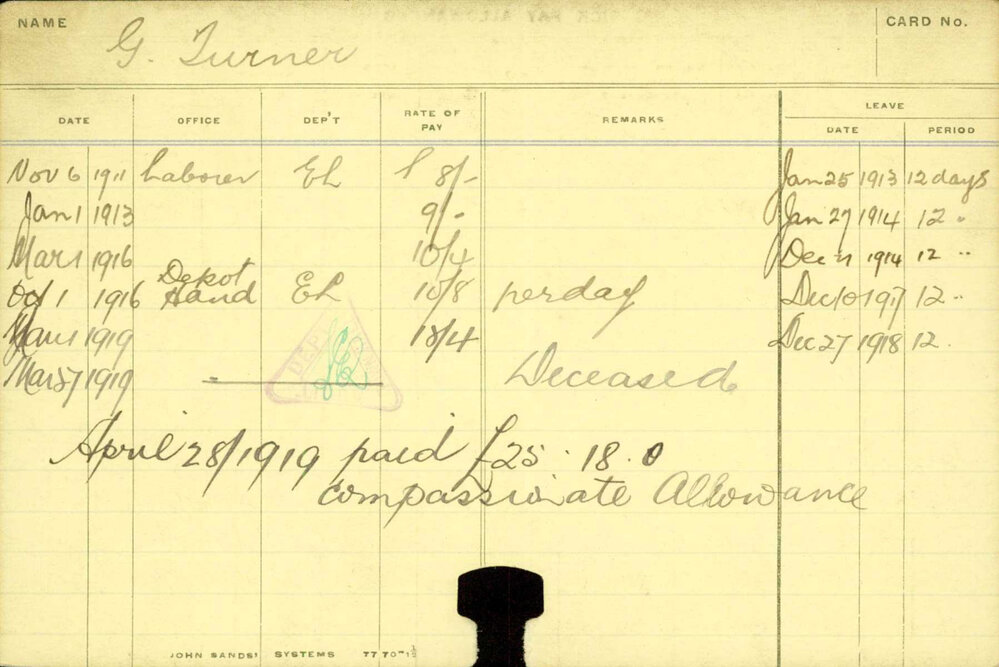 NAME G. Turner CARD No.
DATE OFFICE DEP'T RATE OF PAY REMARKS LEAVE
DATE PERIOD
Nov 6 1911 Laborer EL 8/- Jan 25 1913 12 days
Jan 1 1913 9/- Jan 27 1914 12 "
Mar 1 1916 10/4 Dec 1914 12 "
Oct 1 1916 Depot Hand EL 10/8 per day Dec 10 1917 12 "
1919 13/4 Dec 27 1918 12
Mar 27 1919 Deceased
April 28/1919 paid £25.18.0
compassionate Allowance
JOHN SANDS' SYSTEMS